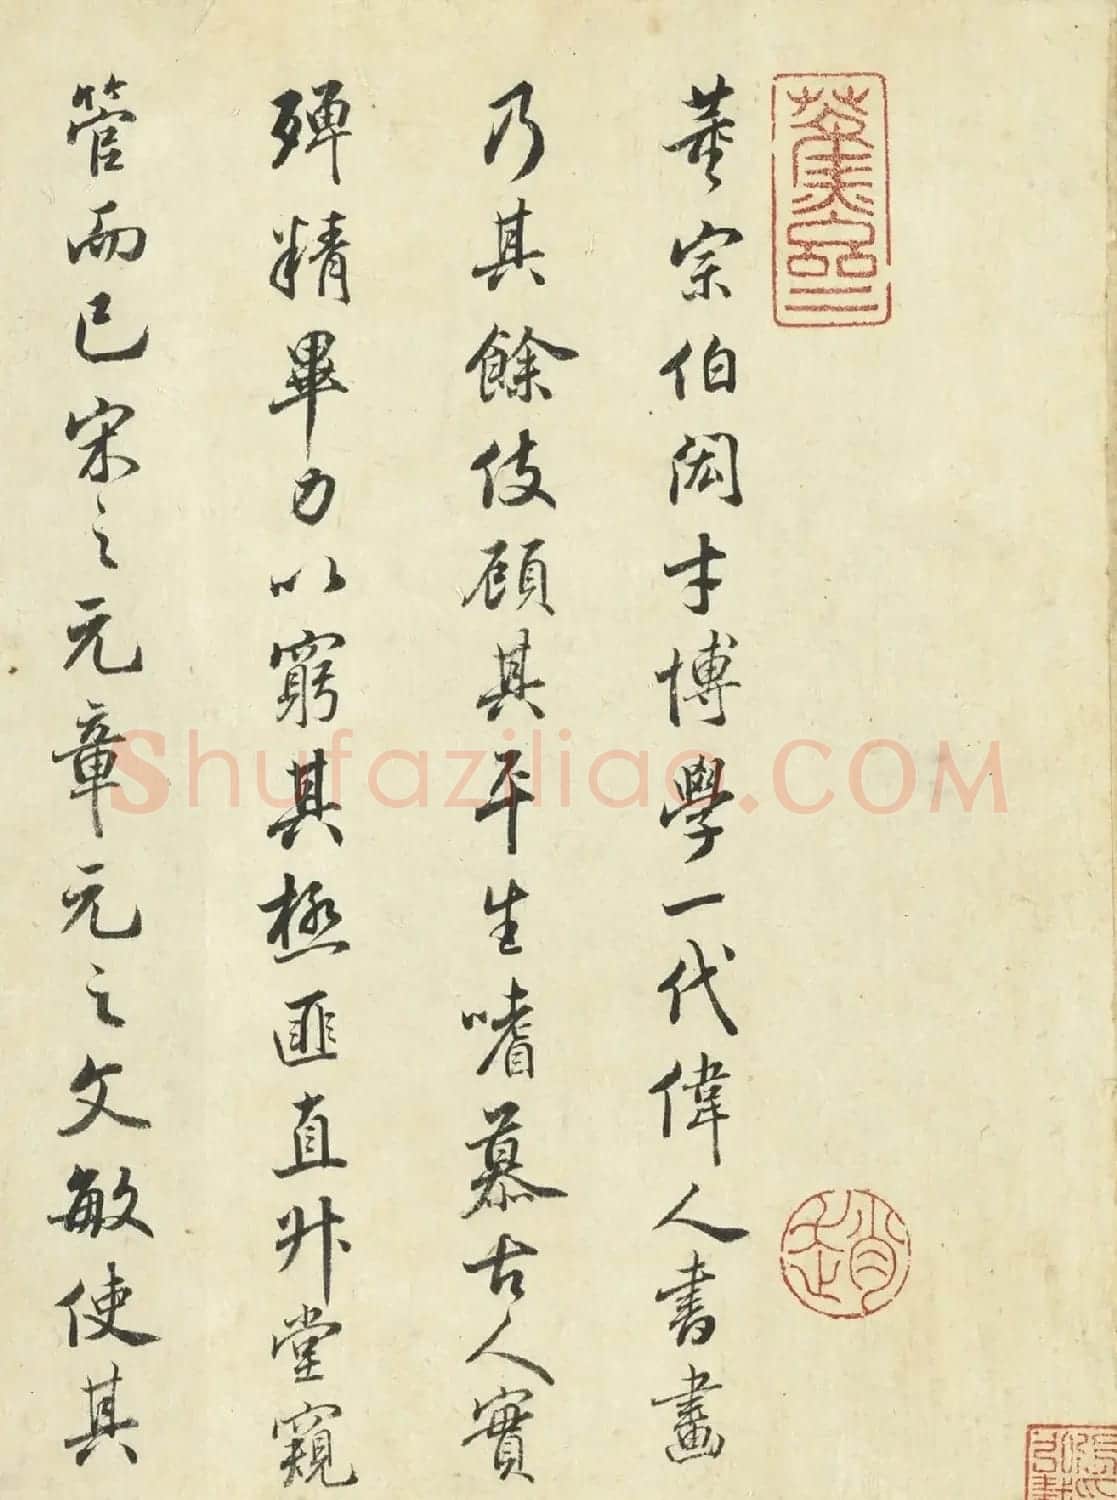 董宗伯閎才博學一代偉人書畫
乃其餘伎顧其平生嗜慕古人實
殫精畢力以窮其極匪直升堂窺
管而已宋之元章元之文敏使其
Shufaziliao.COM